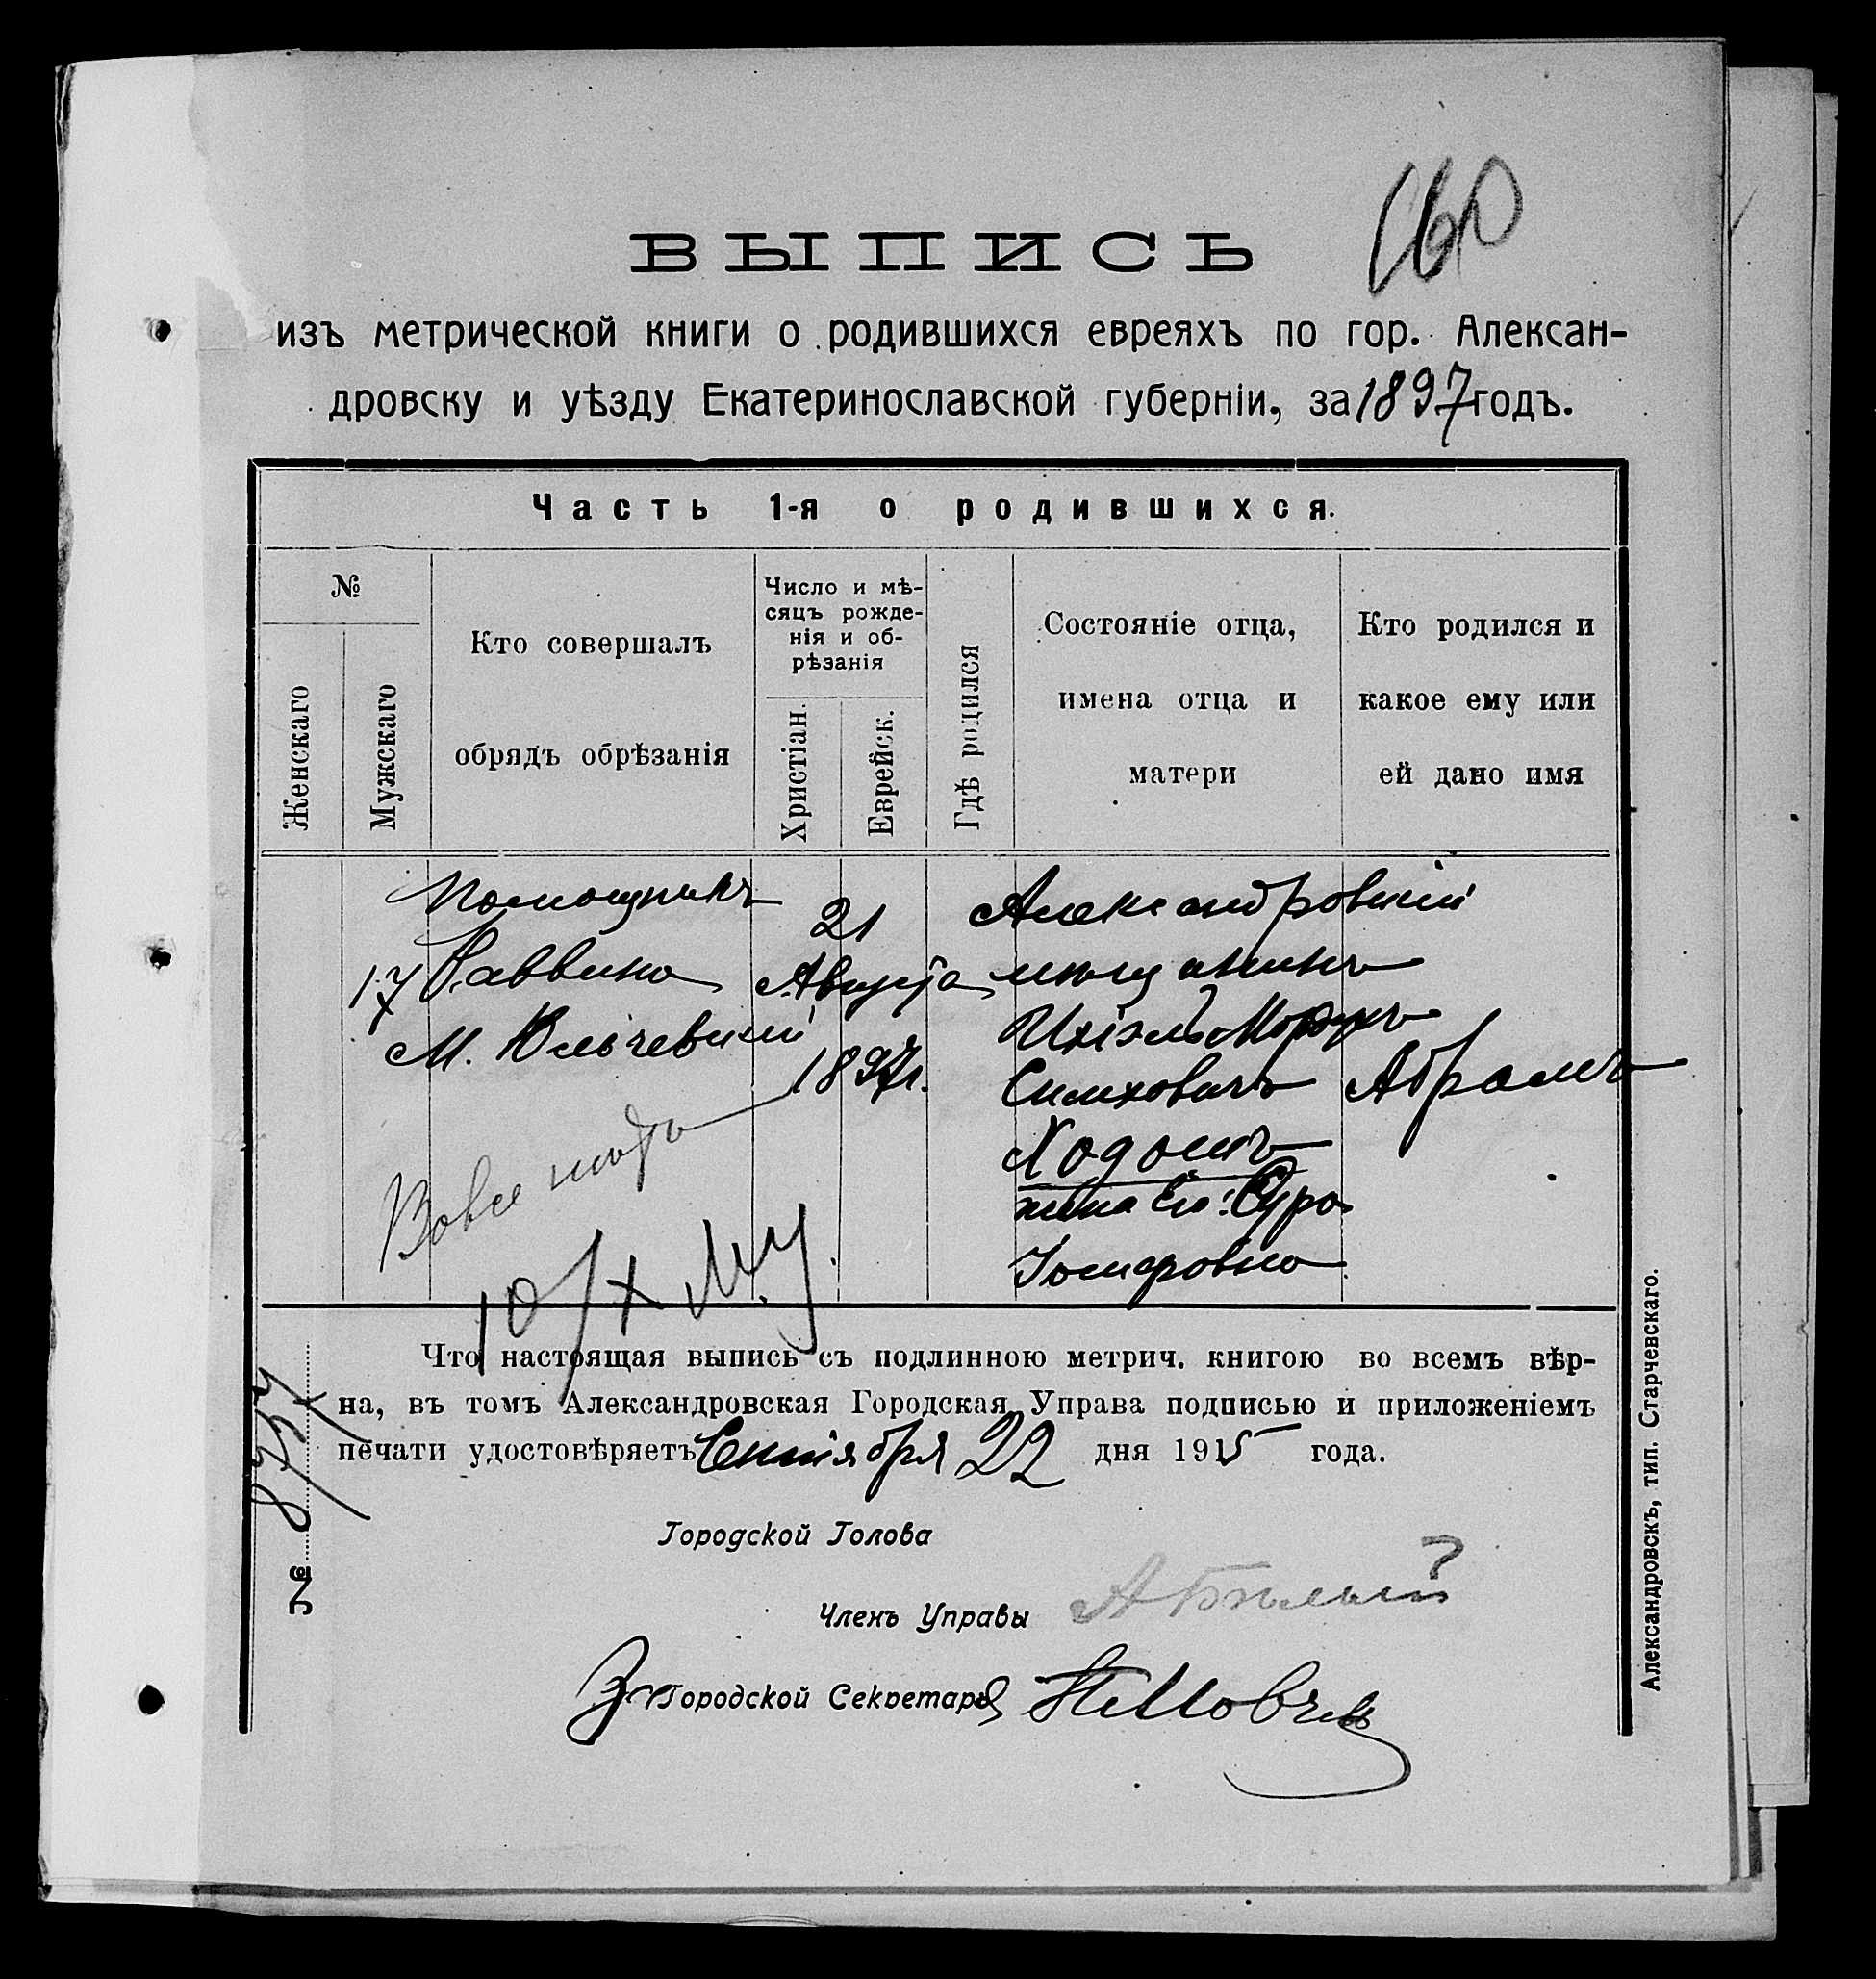 160
ВЫПИСЬ
изъ метрической книги о родившихся евреяхъ по гор. Алексан-
дровску и уѣзду Екатеринославской губерніи, за 1897 годъ.
Часть 1-я о родившихся.
№
Женскаго
Мужскаго
Кто совершалъ
обрядъ обрѣзанія
Число и мѣ-
сяцъ рожде-
нія и об-
рѣзанія
Христіан.
Еврейск.
Гдѣ родился
Состояніе отца,
имена отца и
матери
Кто родился и
какое ему или
ей дано имя
17
Помощникъ
Раввина
М.
21
Августа
1897 г.
Александровскій
мѣщанинъ
Ихіэль Мордухъ
Симховичъ
Ходошъ
жена его: Сура
Іосифовна
Абрамъ
10/X
Что настоящая выпись съ подлинною метрич. книгою во всемъ вѣр-
на, въ томъ Александровская Городская Управа подписью и приложеніемъ
печати удостовѣряетъ Сентября 22 дня 1915 года.
№ 8757
Городской Голова
Членъ Управы АБѣлый
За Городской Секретаря
Александровскъ, тип. Старчевскаго.